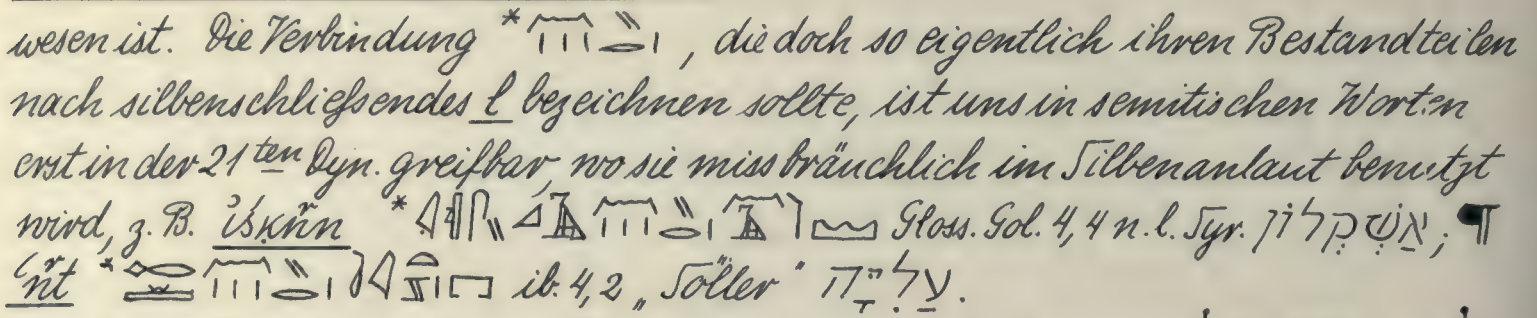 wesen ist. Die Verbindung * , die doch so eigentlich ihren Bestandteilen
nach silbenschließendes l bezeichnen sollte, ist uns in semitischen Worten
erst in der 21ten Dyn. greifbar, wo sie missbräuchlich im Silbenanlaut benutzt
wird, z. B. * Gloss. Gol. 4,4 n. l. Syr. אַשְׁקְלוֹן;
* ib. 4,2 „Söller“ עֲלִיָּה.